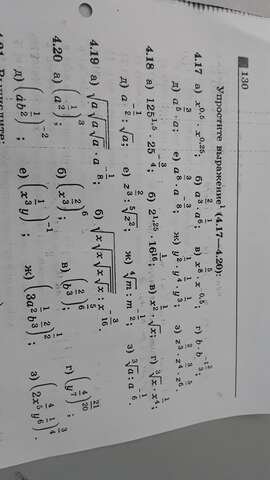 130
Упростите выражение¹ (4.17—4.20):
4.17 а) x^{0,5} · x^{0,25}; б) a^{2/3} · a^{1/6}; в) x^{1/8} · x^{-0,5}; г) b · b^{-1 2/3};
д) a^{3/5} · a; е) a^{3/8} · a^{-3/8}; ж) y^{1/2} · y^{1/4} · y^{1/3}; з) z^{2/3} · z^{3/4} · z^{5/6}.
4.18 а) 125^{1,5} · 25^{-3/4}; б) 2^{1,25} · 16^{1/16}; в) x^{1/2} : √x; г) ∛x · x^{1/4};
д) a^{-1/2} : √a; е) z^{2/5} : ⁵√z²; ж) ⁴√m : m^{-3/4}; з) ∛a : a^{-1/6}.
4.19 а) √a√a√a · a^{-1/8}; б) √x√x√x√x : x^{5/16}
4.20 а) (a^{1/2})^3; б) (x^{2/3})^6; в) (b^{2/3})^{5/6}; г) (y^{4/7})^{21/20};
д) (ab^{1/2})^{-2}; е) (x^{1/3}y)^{-1}; ж) (3a^{2}b^{2/3})^{1/2}; з) (2x^{4/5}y^{1/6})^{3/4}.